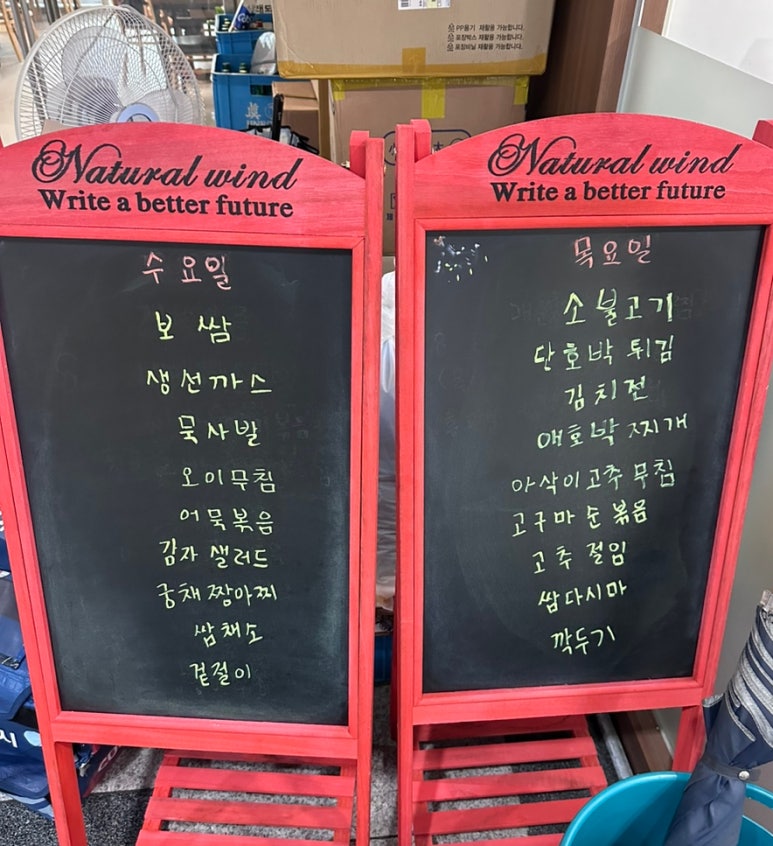 PP용기 재활용 가능합니다.
포장박스 재활용 가능합니다.
포장비닐 재활용 가능합니다.
Natural wind
Write a better future
수요일
보쌈
생선까스
묵사발
오이무침
어묵볶음
감자 샐러드
궁채 짱아찌
쌈채소
겉절이
Natural wind
Write a better future
목요일
소불고기
단호박 튀김
김치전
애호박 찌개
아삭이고추 무침
고구마순 볶음
고추 절임
쌈다시마
깍두기